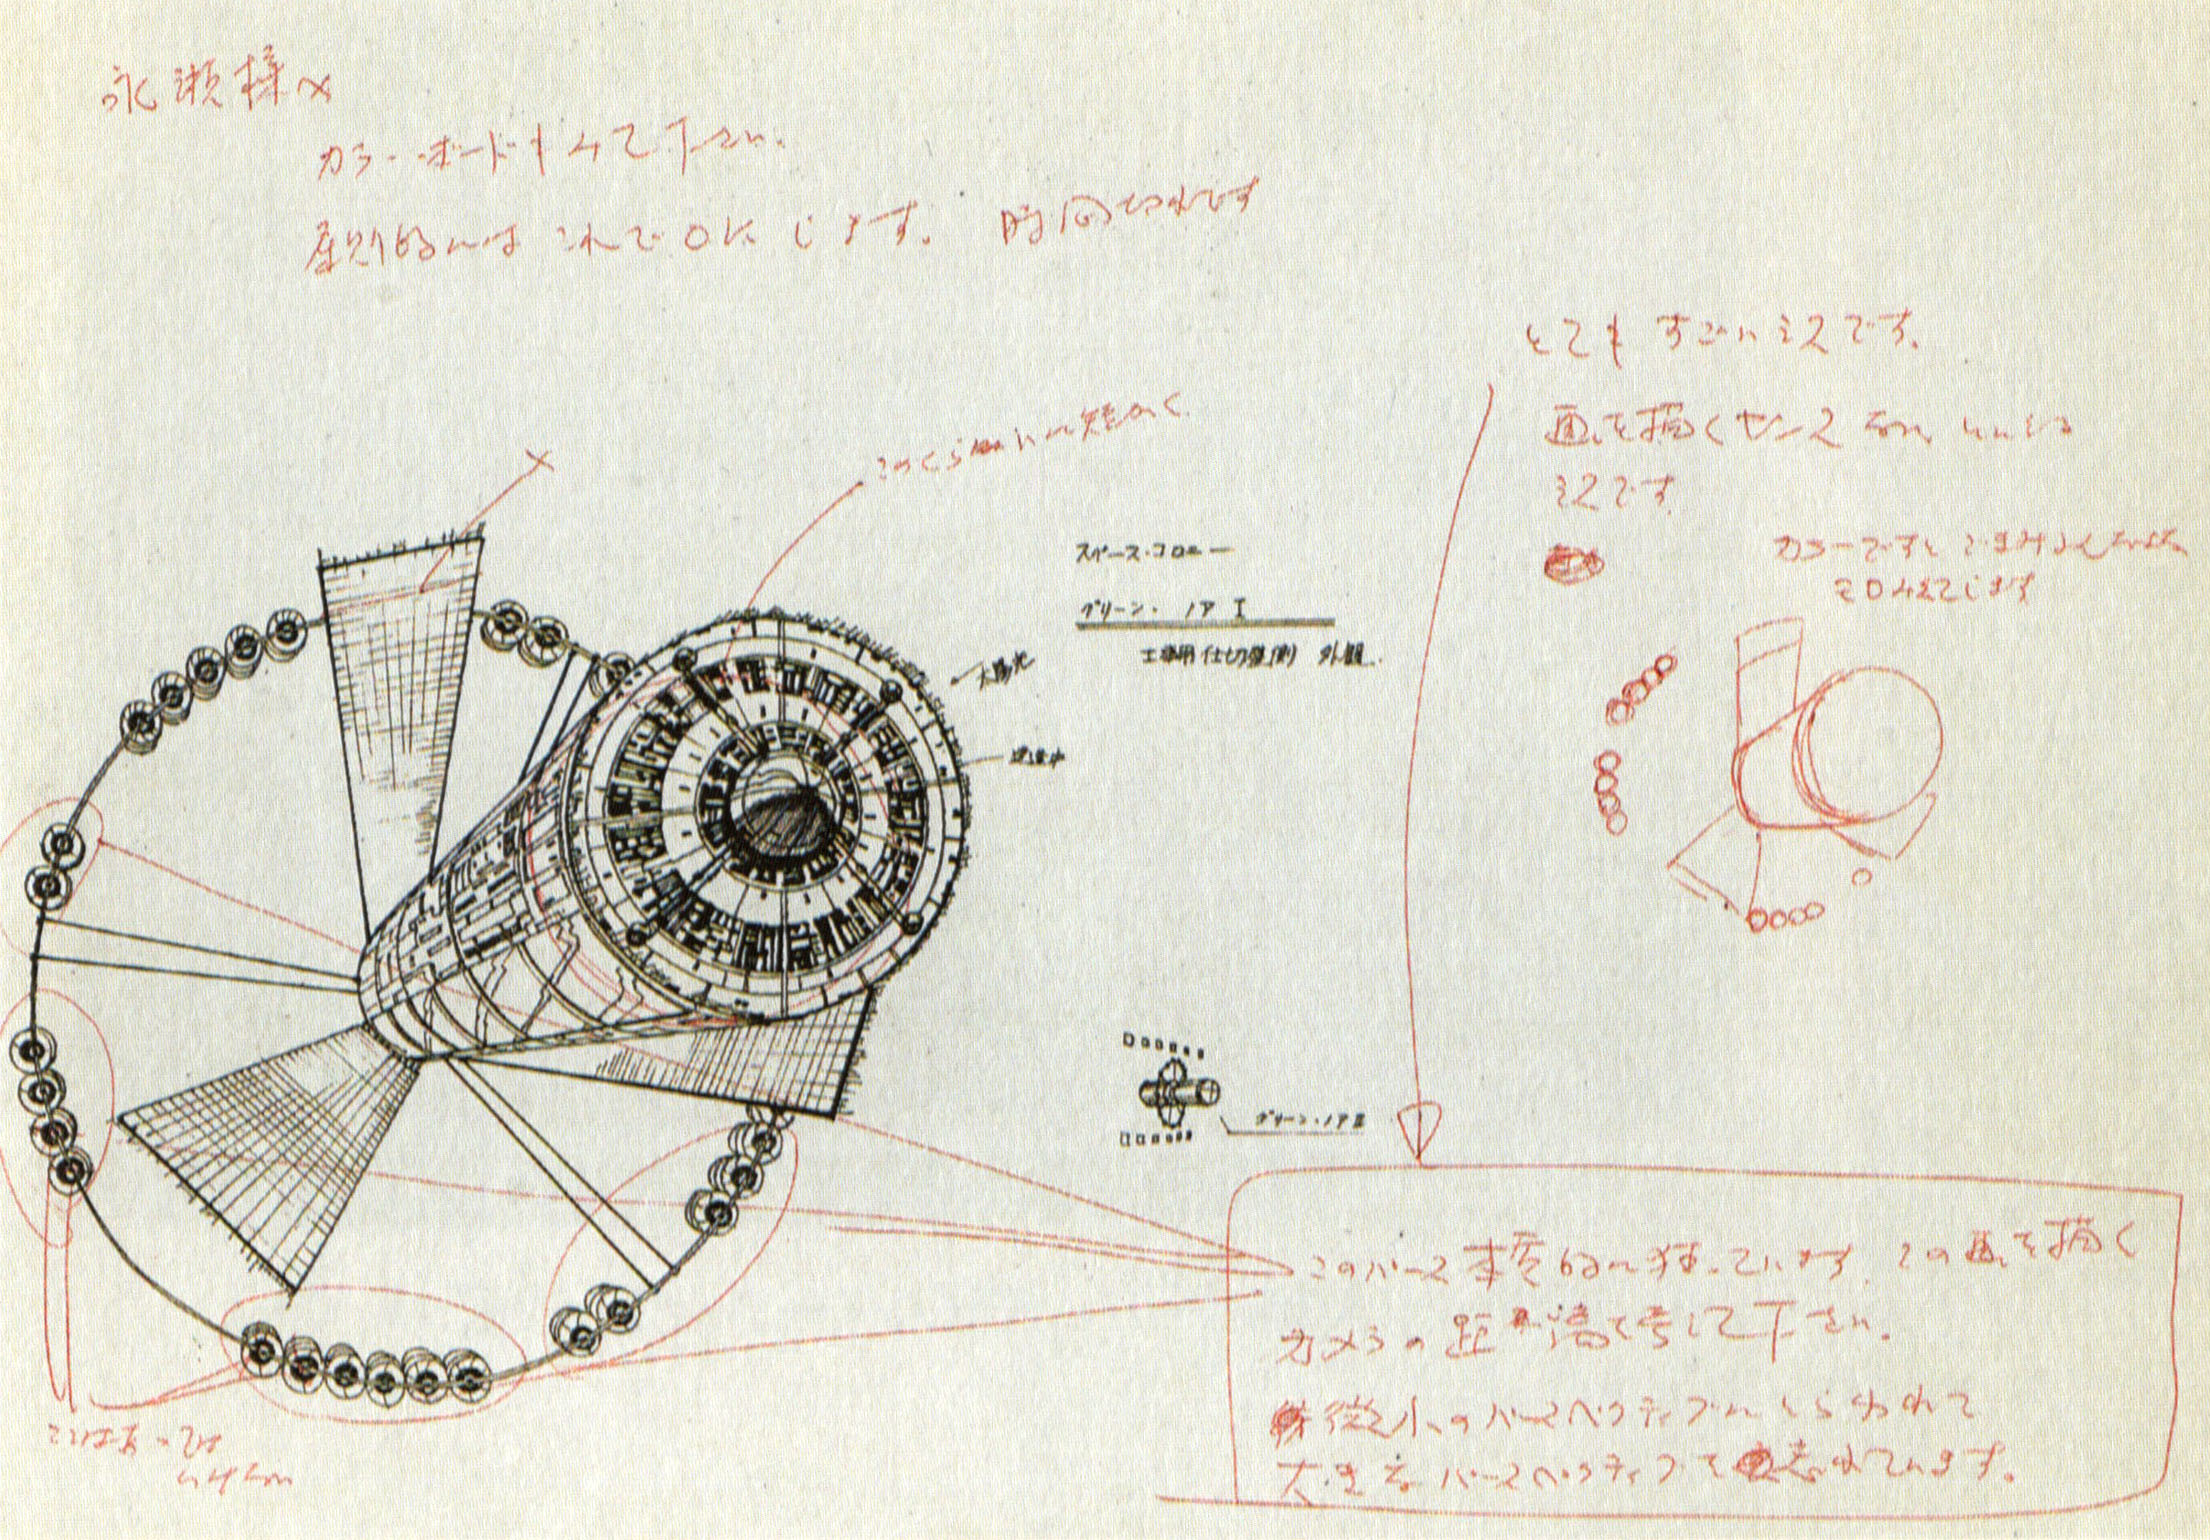 永瀬様へ
カラーボードもみて下さい。
原則的にはこれでOKします。時間切れです
とてもすごいミスです。
画を描くセンス
ミスです
カラーですと
このくらいに短かく
スペース・コロニー
グリーン・ノア I
工事用仕切壁側 外観
太陽光
建造中
グリーン・ノアII
このパース本質的に狂っています。この画を描く
カメラの距離を考えて下さい。
微小のパースペクティブにとらわれて
大きなパースペクティブを忘れています。
ここはあっては
いけない